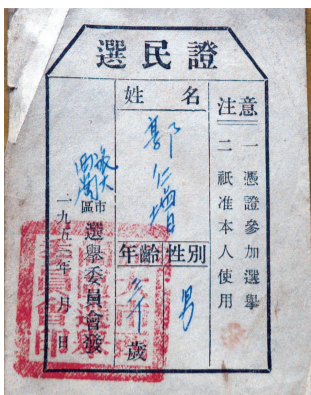 選民證
注意
一 憑證參加選舉
二 祗准本人使用
姓名
郭仁
性別
男
年齡
歲
市
區
選舉委員會發
一九五 年 月 日